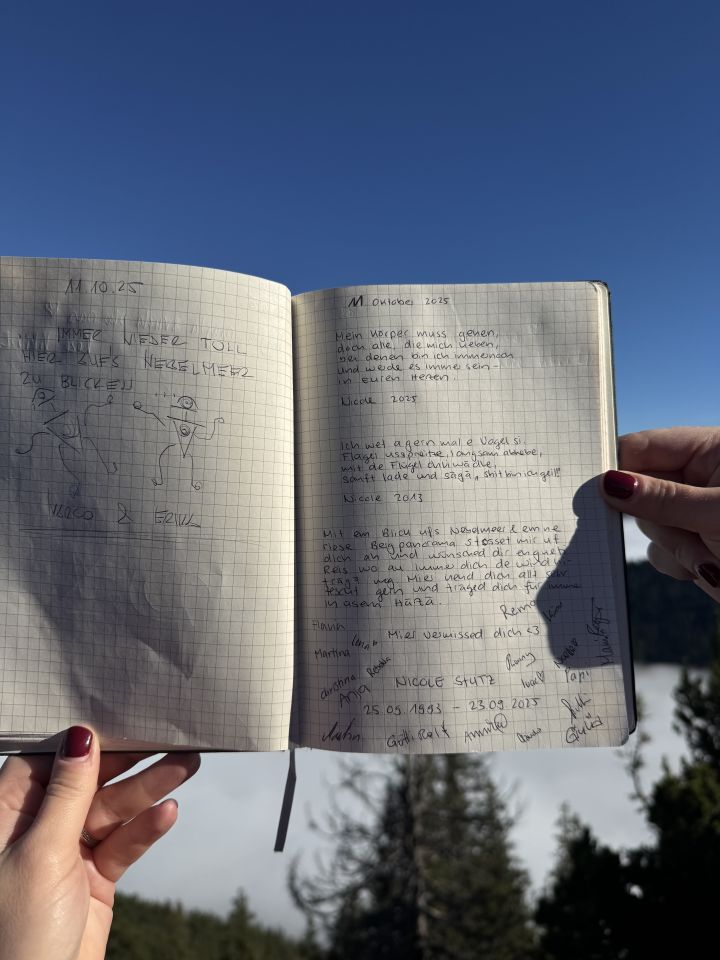 11.10.25
IMMER WIEDER TOLL
HIER AUFS NEBELMEER
ZU BLICKEN
& ERIKA
11. Oktober 2025
Mein Körper muss gehen,
doch alle, die mich lieben,
bei denen bin ich immernoch
und werde es immer sein -
in euren Herzen.
Nicole 2025
Ich wet ä gern mal e Vogel si.
Flügel usspreitze, langsam abhebe,
mit de Flügel
sanft lade und sägä, shit bin ich geil!
Nicole 2013
Mit em Blick ufs Nebelmeer & em ne
riese Bergpanorama stosset mir uf
dich ah und wünsched dir en guet
Reis wo au immer dich de wind hi-
trägt mag. Mier hend dich allt sehr
fescht gern und träged dich für imme
in üsem Härzä.
Remo
Flavia
Mier vermissed dich <3
Martina
Ronny
Christina
Anja
NICOLE STUTZ
Papi
25.09.1993 - 23.09.2025
Götti Rolf
Giulia